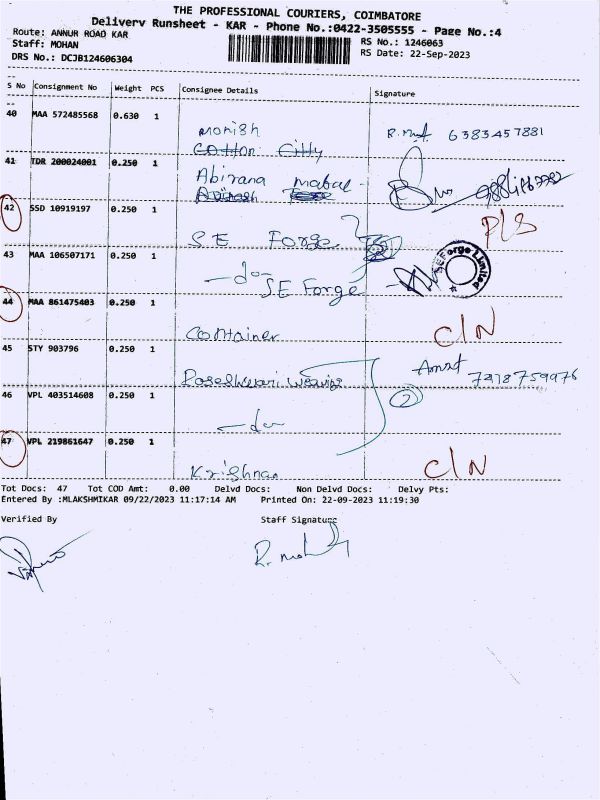 THE PROFESSIONAL COURIERS, COIMBATORE
Delivery Runsheet - KAR - Phone No.:0422-3505555 - Page No.:4
Route: ANNUR ROAD KAR
Staff: MOHAN
DRS No.: DCJB124606304
RS No.: 1246063
RS Date: 22-Sep-2023
S No Consignment No Weight PCS Consignee Details Signature
40 MAA 572485568 0.630 1 Monish R. 6383457881
Cotton City
41 TDR 200024001 0.250 1 Abirana Mahal
42 SSD 10919197 0.250 1 S E Forge P/S
43 MAA 106507171 0.250 1 -do- SE Forge SEForge Limited
44 MAA 861475403 0.250 1 Container C/N
45 STY 903796 0.250 1 7218759976
46 VPL 403514608 0.250 1 -do- 2
47 VPL 219861647 0.250 1 Krishnan C/N
Tot Docs: 47 Tot COD Amt: 0.00 Delvd Docs: Non Delvd Docs: Delvy Pts:
Entered By :MLAKSHMIKAR 09/22/2023 11:17:14 AM Printed On: 22-09-2023 11:19:30
Verified By Staff Signature
R. Moh